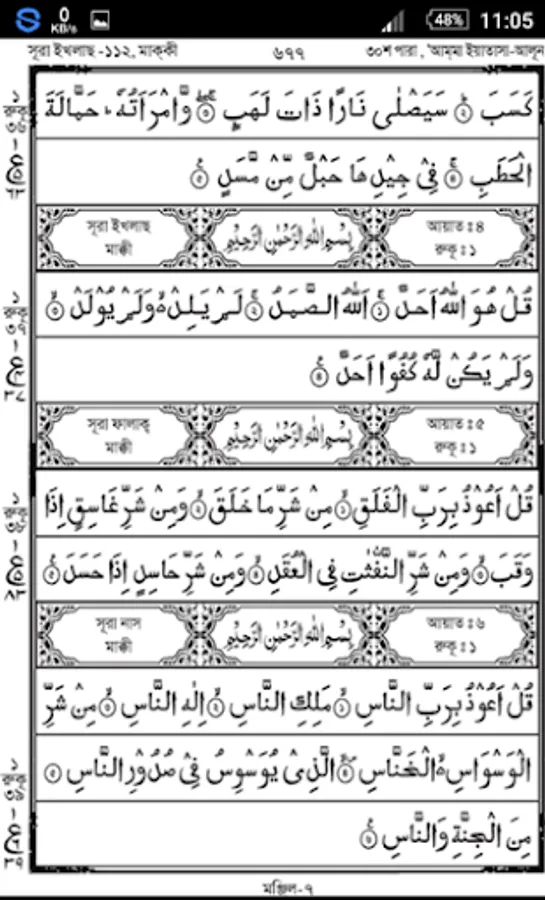 0 KB/s 48% 11:05
সূরা ইখলাছ -১১২, মাক্কী ৬৭৭ ৩০শ পারা , 'আম্মা ইয়াতাসা-আলূন
كَسَبَ ۝٢ سَيَصْلٰى نَارًا ذَاتَ لَهَبٍ ۝٣ وَّامْرَاَتُهٗ ؕ حَمَّالَةَ
الْحَطَبِ ۝٤ فِيْ جِيْدِهَا حَبْلٌ مِّنْ مَّسَدٍ ۝٥
সূরা ইখলাছ بِسْمِ اللّٰهِ الرَّحْمٰنِ الرَّحِيْمِ আয়াত : ৪
মাক্কী রুকূ : ১
قُلْ هُوَ اللّٰهُ اَحَدٌ ۝١ اَللّٰهُ الصَّمَدُ ۝٢ لَمْ يَلِدْ وَلَمْ يُوْلَدْ ۝٣
وَلَمْ يَكُنْ لَّهٗ كُفُوًا اَحَدٌ ۝٤
সূরা ফালাক্ব بِسْمِ اللّٰهِ الرَّحْمٰنِ الرَّحِيْمِ আয়াত : ৫
মাক্কী রুকূ : ১
قُلْ اَعُوْذُ بِرَبِّ الْفَلَقِ ۝١ مِنْ شَرِّ مَا خَلَقَ ۝٢ وَمِنْ شَرِّ غَاسِقٍ اِذَا
وَقَبَ ۝٣ وَمِنْ شَرِّ النَّفّٰثٰتِ فِي الْعُقَدِ ۝٤ وَمِنْ شَرِّ حَاسِدٍ اِذَا حَسَدَ ۝٥
সূরা নাস بِسْمِ اللّٰهِ الرَّحْمٰنِ الرَّحِيْمِ আয়াত : ৬
মাক্কী রুকূ : ১
قُلْ اَعُوْذُ بِرَبِّ النَّاسِ ۝١ مَلِكِ النَّاسِ ۝٢ اِلٰهِ النَّاسِ ۝٣ مِنْ شَرِّ
الْوَسْوَاسِ ۙ الْخَنَّاسِ ۝٤ الَّذِيْ يُوَسْوِسُ فِيْ صُدُوْرِ النَّاسِ ۝٥
مِنَ الْجِنَّةِ وَالنَّاسِ ۝٦
মঞ্জিল-৭